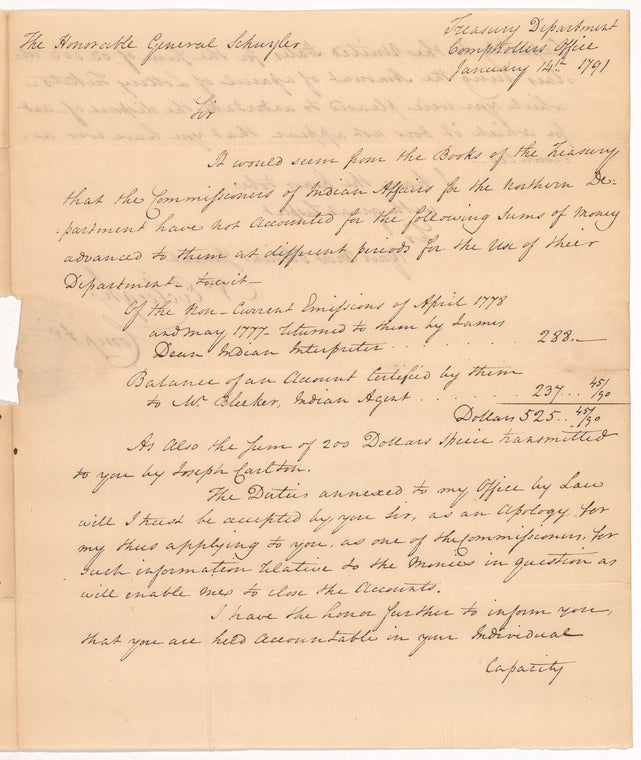 Treasury Department
The Honorable General Schuyler
Comptrollers Office
January 14th. 1791
Sir
It would seem from the Books of the Treasury
that the Commissioners of Indian Affairs for the Northern De-
-partment have not Accounted for the following Sums of Money
advanced to them at different periods for the Use of their
Department - to wit -
Of the Non-Current Emissions of April 1778
and May 1777 - returned to them by James
Dean Indian Interpreter . . . . . . . 288.—
Balance of an Account Certified by them
to Mr. Bleeker, Indian Agent . . . . . . 237... 45/90
Dollars 525.. 45/90
As Also the Sum of 200 Dollars Specie transmitted
to you by Joseph Carlton.
The Duties annexed to my Office by Law
will I trust be accepted by you Sir, as an Apology, for
my thus applying to you, as one of the Commissioners, for
such information relative to the Monies in question as
will enable me to close the Accounts.
I have the honor further to inform you,
that you are held Accountable in your Individual
Capacity